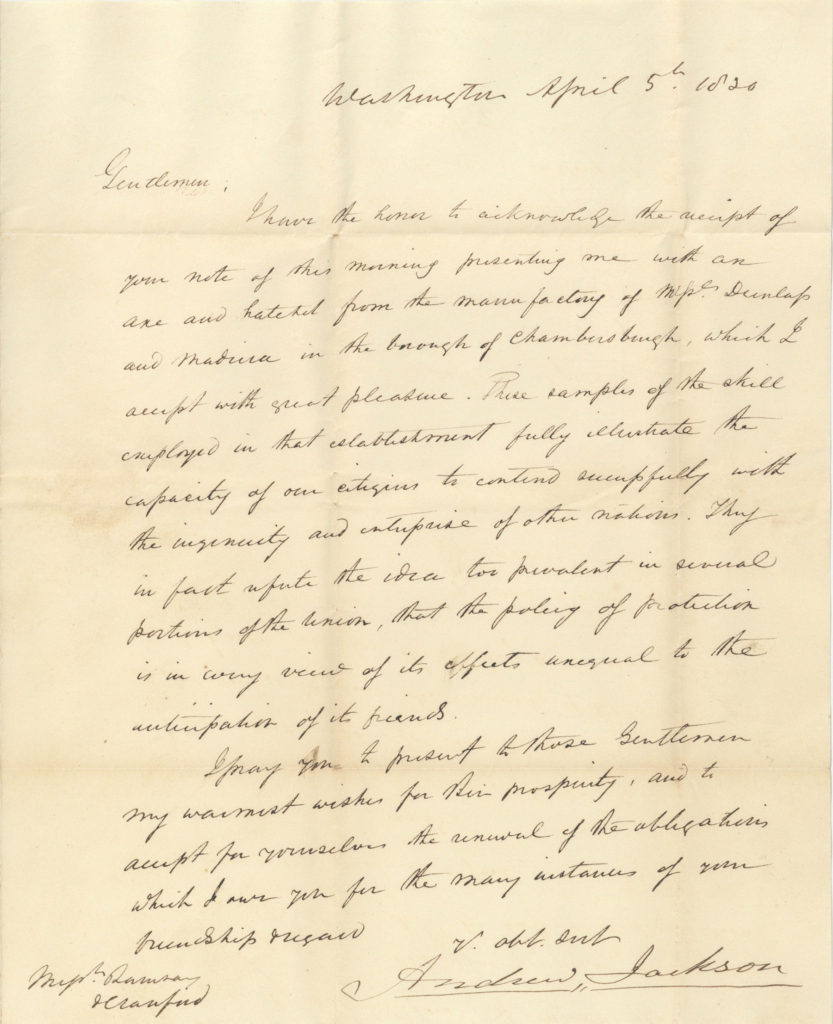 Washington April 5th. 1830
Gentlemen,
I have the honor to acknowledge the receipt of
your note of this morning presenting me with an
axe and hatchet from the manufactory of Messrs. Dunlap
and Madiera in the borough of Chambersburgh, which I
accept with great pleasure. These samples of the skill
employed in that establishment fully illustrate the
capacity of our citizens to contend successfully with
the ingenuity and enterprise of other nations. They
in fact refute the idea too prevalent in several
portions of the Union, that the policy of protection
is in every view of its effects unequal to the
anticipation of its friends.
I pray you to present to those Gentlemen
my warmest wishes for their prosperity, and to
accept for yourselves the renewal of the obligations
which I owe you for the many instances of your
friendship & regard
yr. obt. svt
Andrew Jackson
Messrs. Ramsay
& Craufurd